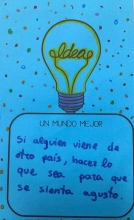 Idea
UN MUNDO MEJOR
Si alguien viene de
otro país, haces lo
que sea para que
se sienta agusto.